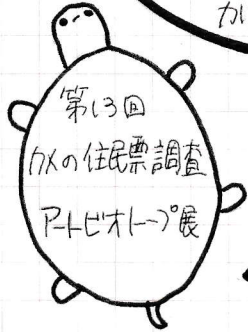 第13回
カメの住民票調査
アートビオトープ展
かい